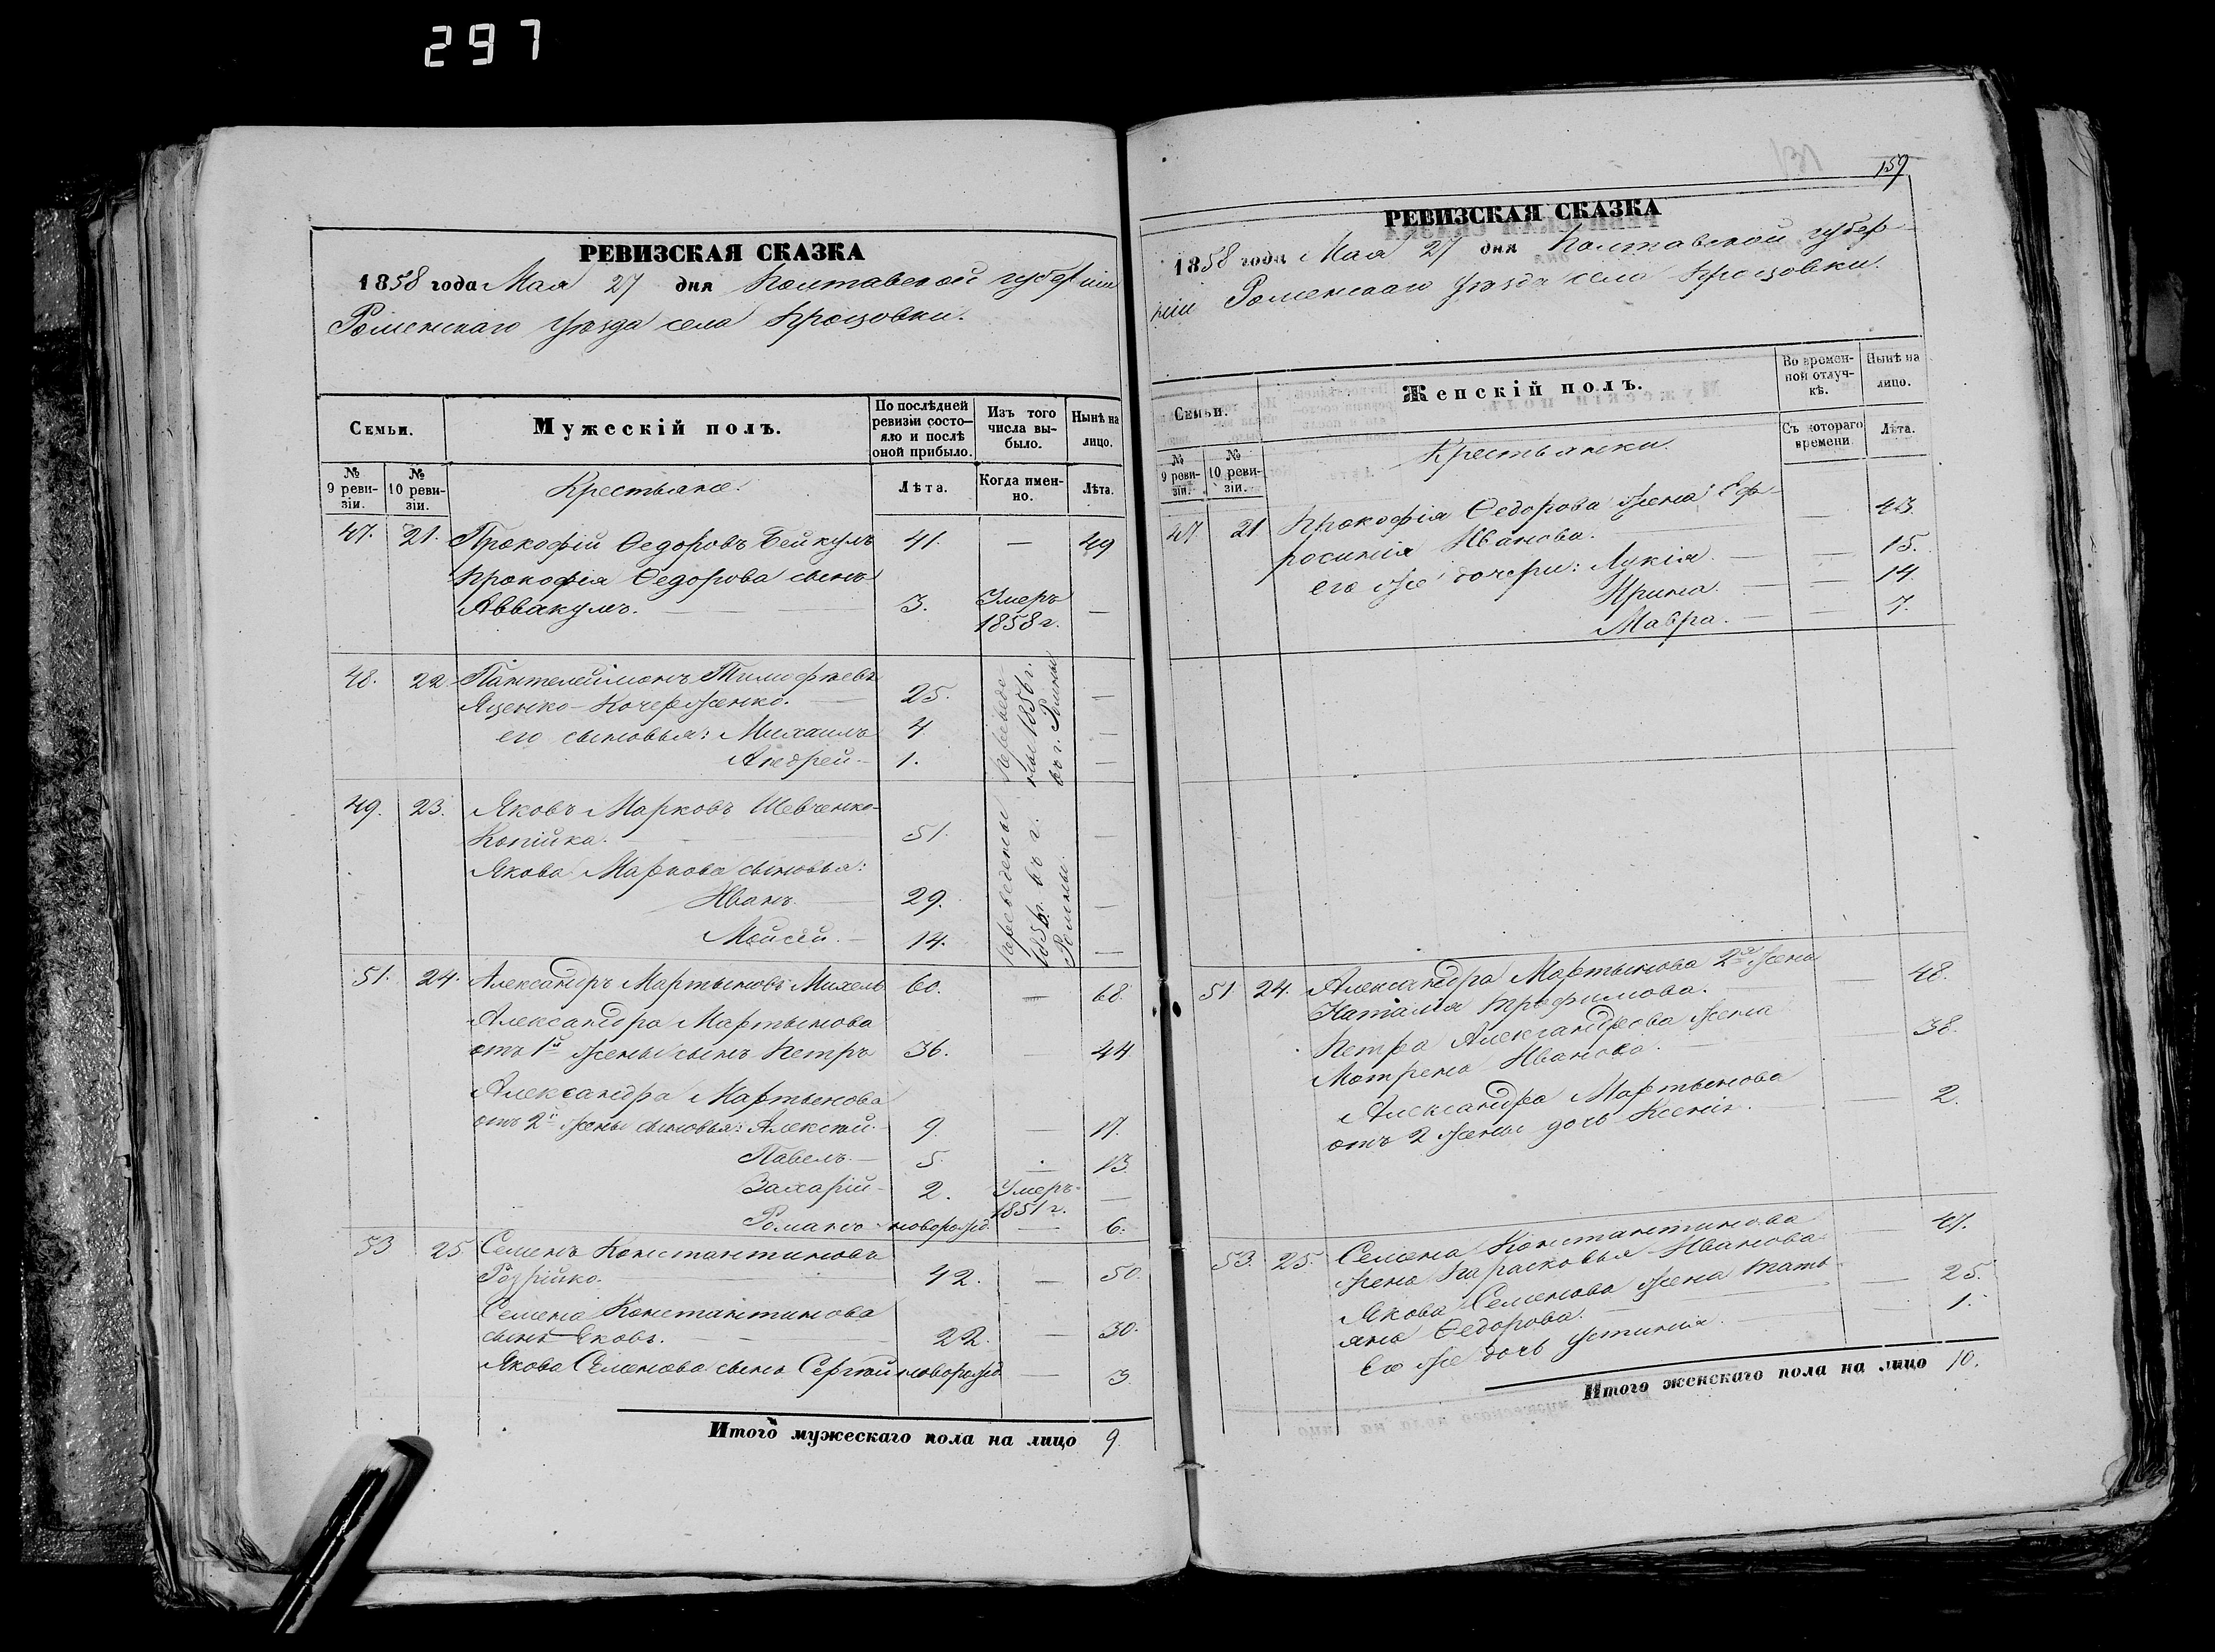 297
РЕВИЗСКАЯ СКАЗКА
1858 года Мая 27 дня Полтавской губерніи
Роменскаго уѣзда села Процовки.
Семьи.
Мужескій полъ.
По послѣдней ревизіи состо-
яло и послѣ оной прибыло.
Изъ того числа вы-
было.
Нынѣ на лицо.
№ 9 реви-
зіи.
№ 10 реви-
зіи.
Крестьяне.
Лѣта.
Когда имен-
но.
Лѣта.
47. 21. Прокофій Ѳедоровъ Бейкулъ 41. — 49
Прокофія Ѳедорова сынъ
Аввакумъ. — 3. Умеръ 1858 г. —
48. 22 Пантелеймонъ Тимофѣевъ
Яценко-Кочерженко. — 25. —
его сыновья: Михаилъ 4 —
Андрей — 1. —
Переведе-
ны 1856 г.
въ г. Ромны
49. 23. Яковъ Марковъ Шевченко-
Копійка. — 51. —
Якова Маркова сыновья:
Иванъ. — 29. —
Мойсей. — 14. —
Переведены
1856 г. въ г.
Ромны.
51. 24. Александръ Мартыновъ Михель 60. — 68.
Александра Мартынова
отъ 1й жены сынъ Петръ 36. 44
Александра Мартынова
отъ 2й жены сыновья: Алексѣй. 9. — 17.
Павелъ. — 5. — 13.
Захарій — 2. Умеръ 1851 г. —
Романъ — новорожд. — 6.
53 25 Семенъ Константиновъ
— 42. — 50.
Семена Константинова
сынъ Яковъ. — 22. — 30.
Якова Семенова сынъ Сергѣй новорожд. — 3
Итого мужескаго пола на лицо 9.
159
РЕВИЗСКАЯ СКАЗКА
1858 года Мая 27 дня Полтавской губер-
ніи Роменскаго уѣзда села Процовки.
Семьи.
Женскій полъ.
Во времен-
ной отлуч-
кѣ.
Нынѣ на лицо.
№ 9 реви-
зіи.
№ 10 реви-
зіи.
Крестьянки.
Съ котораго времени
Лѣта.
47 21 Прокофія Ѳедорова жена Еф-
росинія Иванова. — 43.
его же дочери: Лукія. — 15.
Ирина. — 14.
Мавра. — 7.
51. 24. Александра Мартынова 2я жена
Наталія Трофимова. — 48.
Петра Александрова жена
Мотрена Иванова. — 38.
Александра Мартынова
отъ 2 жены дочь Ксенія. — 2.
53. 25. Семена Константинова
жена Парасковья Иванова — 47.
Якова Семенова жена Тать-
яна Ѳедорова. — 25.
Его же дочь Устинія. — 1.
Итого женскаго пола на лицо 10.